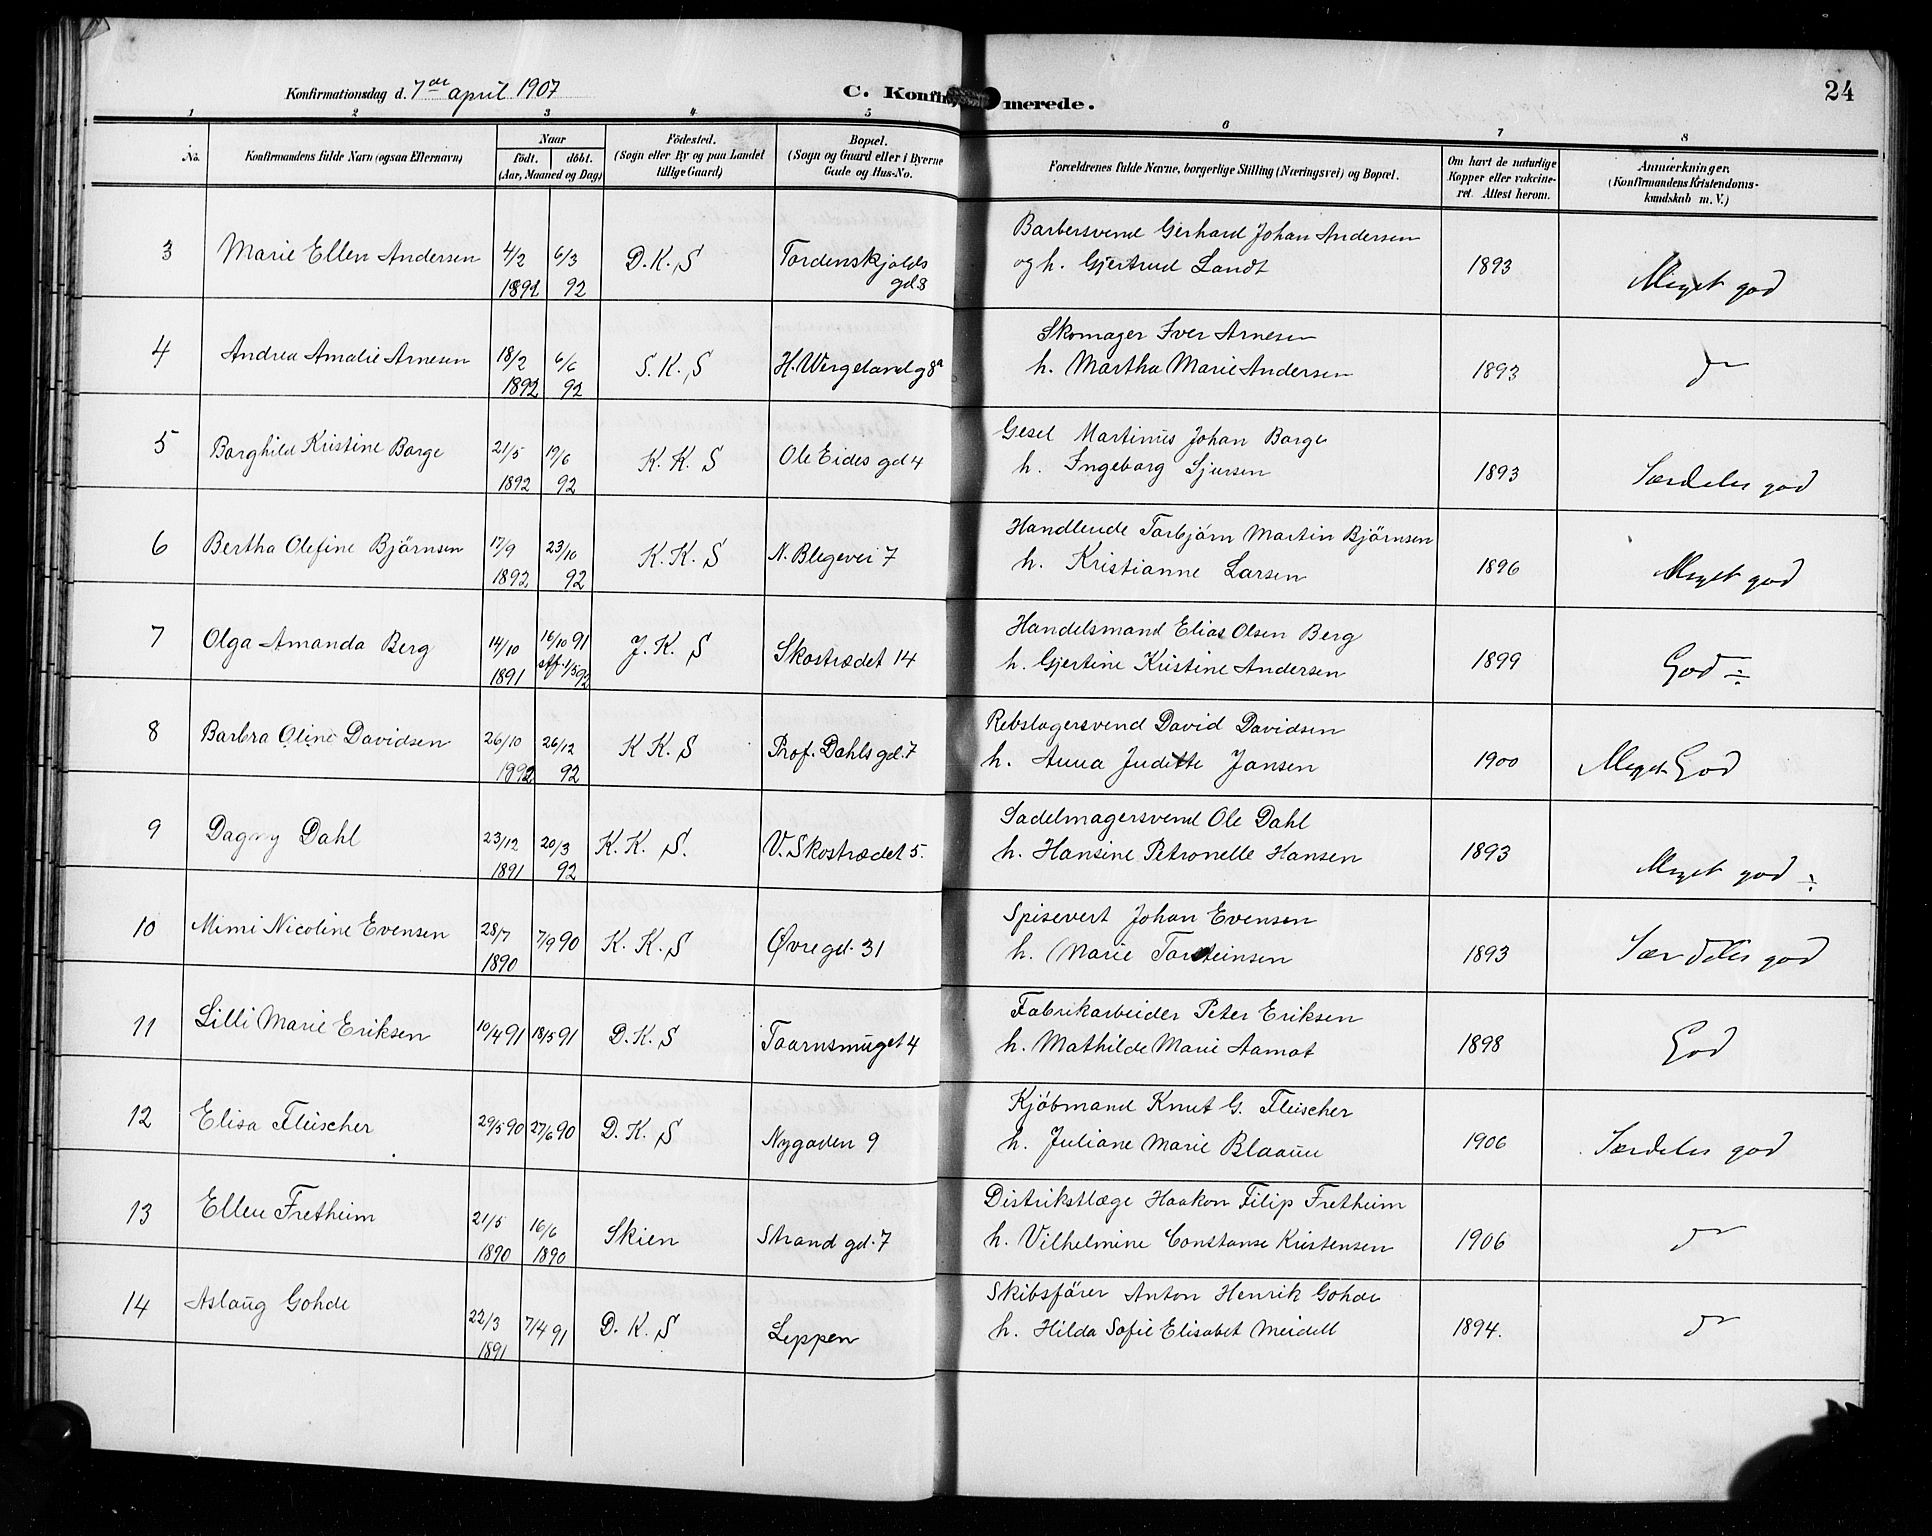 Konfirmationsdag d. 7de april 1907
C. Konfirmerede.
24
1 2 3 4 5 6 7 8
No.
Konfirmandens fulde Navn (ogsaa Efternavn)
Naar
födt. döbt.
(Aar, Maaned og Dag)
Födested.
(Sogn eller By og paa Landet
tillige Gaard)
Bopæl.
(Sogn og Gaard eller i Byerne
Gade og Hus-No.
Forældrenes fulde Navne, borgerlige Stilling (Næringsvei) og Bopæl.
Om havt de naturlige
Kopper eller vakcine-
ret. Attest herom.
Anmærkninger.
(Konfirmandens Kristendoms-
kundskab m. V.)
3 Marie Ellen Andersen 4/2 1892 6/3 92 D. K. S Tordenskjolds gd 8
Barbersvend Gerhard Johan Andersen
og h. Gjertrud Landt 1893 Meget god
4 Andrea Amalie Arnesen 18/2 1892 6/6 92 S. K. S H. Wergeland g 8a
Skomager Iver Arnesen
h. Martha Marie Andersen 1893 do
5 Borghild Kristine Borge 21/5 1892 19/6 92 K. K. S Ole Eides gd 4
Gesel Martinus Johan Borge
h. Ingeborg Sjursen 1893 Særdeles god
6 Bertha Olefine Björnsen 17/9 1892 23/10 92 K. K. S N. Blegevei 7
Handlende Torbjörn Martin Björnsen
h. Kristianne Larsen 1896 Meget god
7 Olga Amanda Berg 14/10 1891 16/10 91 stf. 1/5 92 J. K. S Skostrædet 14
Handelsmand Elias Olsen Berg
h. Gjertine Kristine Andersen 1899 God ÷
8 Barbra Oline Davidsen 26/10 1892 26/12 92 K K. S Prof. Dahls gd. 7
Rebslagersvend David Davidsen
h. Anna Juditte Jansen 1900 Meget God
9 Dagny Dahl 23/12 1891 20/3 92 K. K. S. V. Skostrædet 5.
Sadelmagersvend Ole Dahl
h. Hansine Petronelle Hansen 1893 Meget god ÷
10 Mimi Nicoline Evensen 28/7 1890 7/9 90 K. K. S Øvre gd. 31
Spisevert Johan Evensen
h. Marie Torsteinsen 1893 Særdeles god
11 Lilli Marie Eriksen 10/4 91 18/5 91 D. K. S Taarnsmuget 4
Fabrikarbeider Peter Eriksen
h. Mathilde Marie Aamot 1898 God
12 Elisa Fleischer 29/5 90 27/6 90 D. K. S Nygaden 9
Kjöbmand Knut G. Fleischer
h. Juliane Marie Blaauw 1906 Særdeles god
13 Ellen Fretheim 21/5 1890 16/6 1890 Skien Strand gd. 7
Distrikstlæge Haakon Filip Fretheim
h. Vilhelmine Constanse Kristensen 1906 do
14 Aslaug Gohde 22/3 1891 7/4 91 D. K. S Leppen
Skibsförer Anton Henrik Gohde
h. Hilda Sofie Elisabet Meidell 1894. do